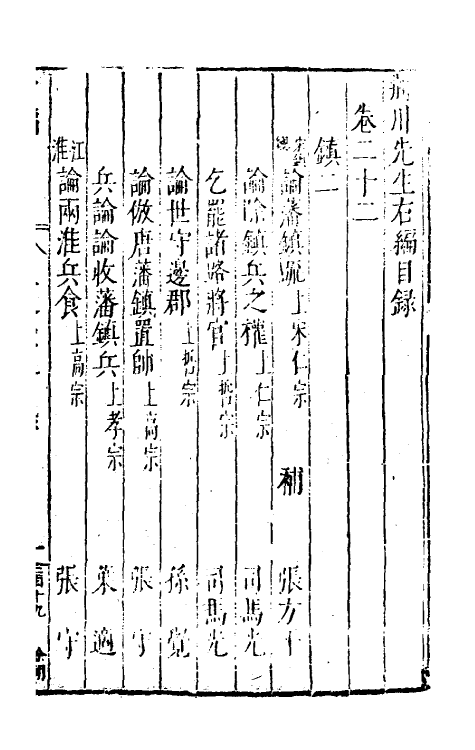 荊川先生右編目録
卷二十二
鎮二
論藩鎮疏上宋仁宗 補 張方平
論除鎮兵之權上仁宗 司馬光
乞罷諸路將官上哲宗 司馬光
論世守邊郡上哲宗 孫覺
論倣唐藩鎮置帥上高宗 張守
兵論論收藩鎮兵上孝宗 葉適
江淮論兩淮兵食上高宗 張守